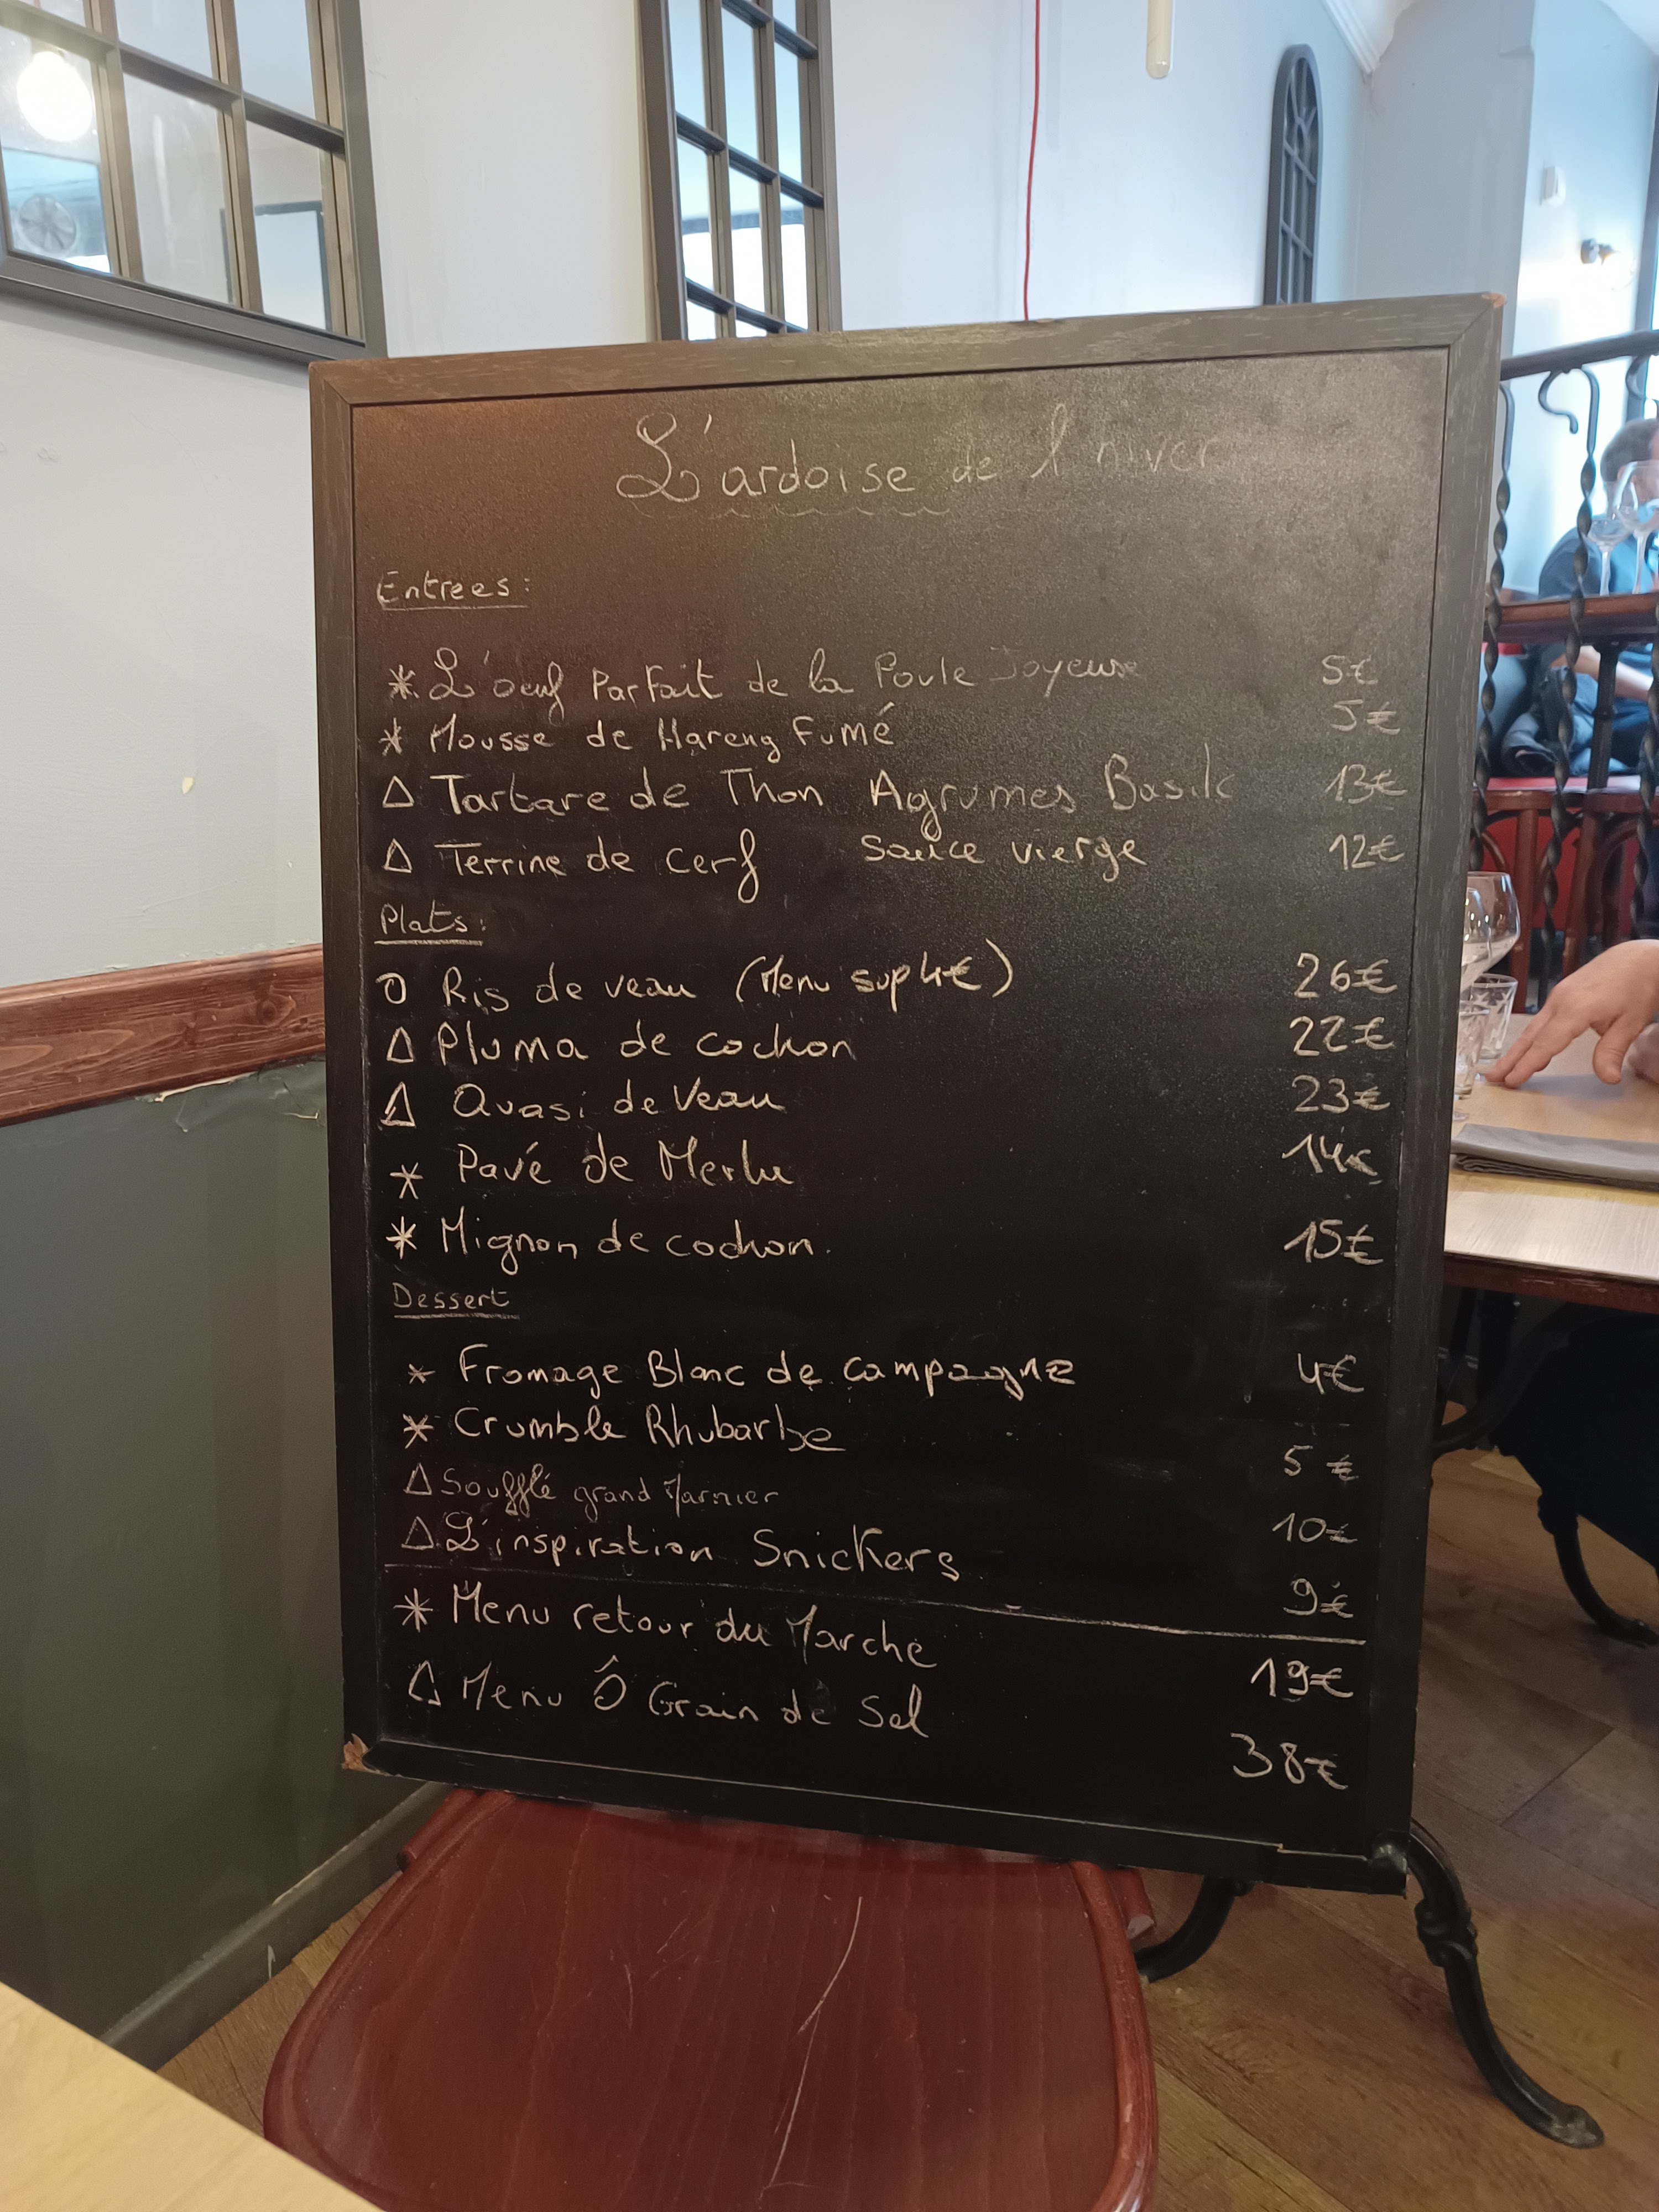 L'ardoise de l'hiver
Entrees:
* L'oeuf Parfait de la Poule Joyeuse 5€
* Mousse de Hareng Fumé 5€
△ Tartare de Thon Agrumes Basilic 13€
△ Terrine de cerf Sauce vierge 12€
Plats:
O Ris de veau (Menu sup 4€) 26€
△ Pluma de cochon 22€
△ Quasi de Veau 23€
* Pavé de Merlu 14€
* Mignon de cochon. 15€
Dessert
* Fromage Blanc de campagne 4€
* Crumble Rhubarbe 5€
△ Soufflé grand Marnier 10€
△ L'inspiration Snickers 9€
* Menu retour du Marché 19€
△ Menu Ô Grain de Sel 38€